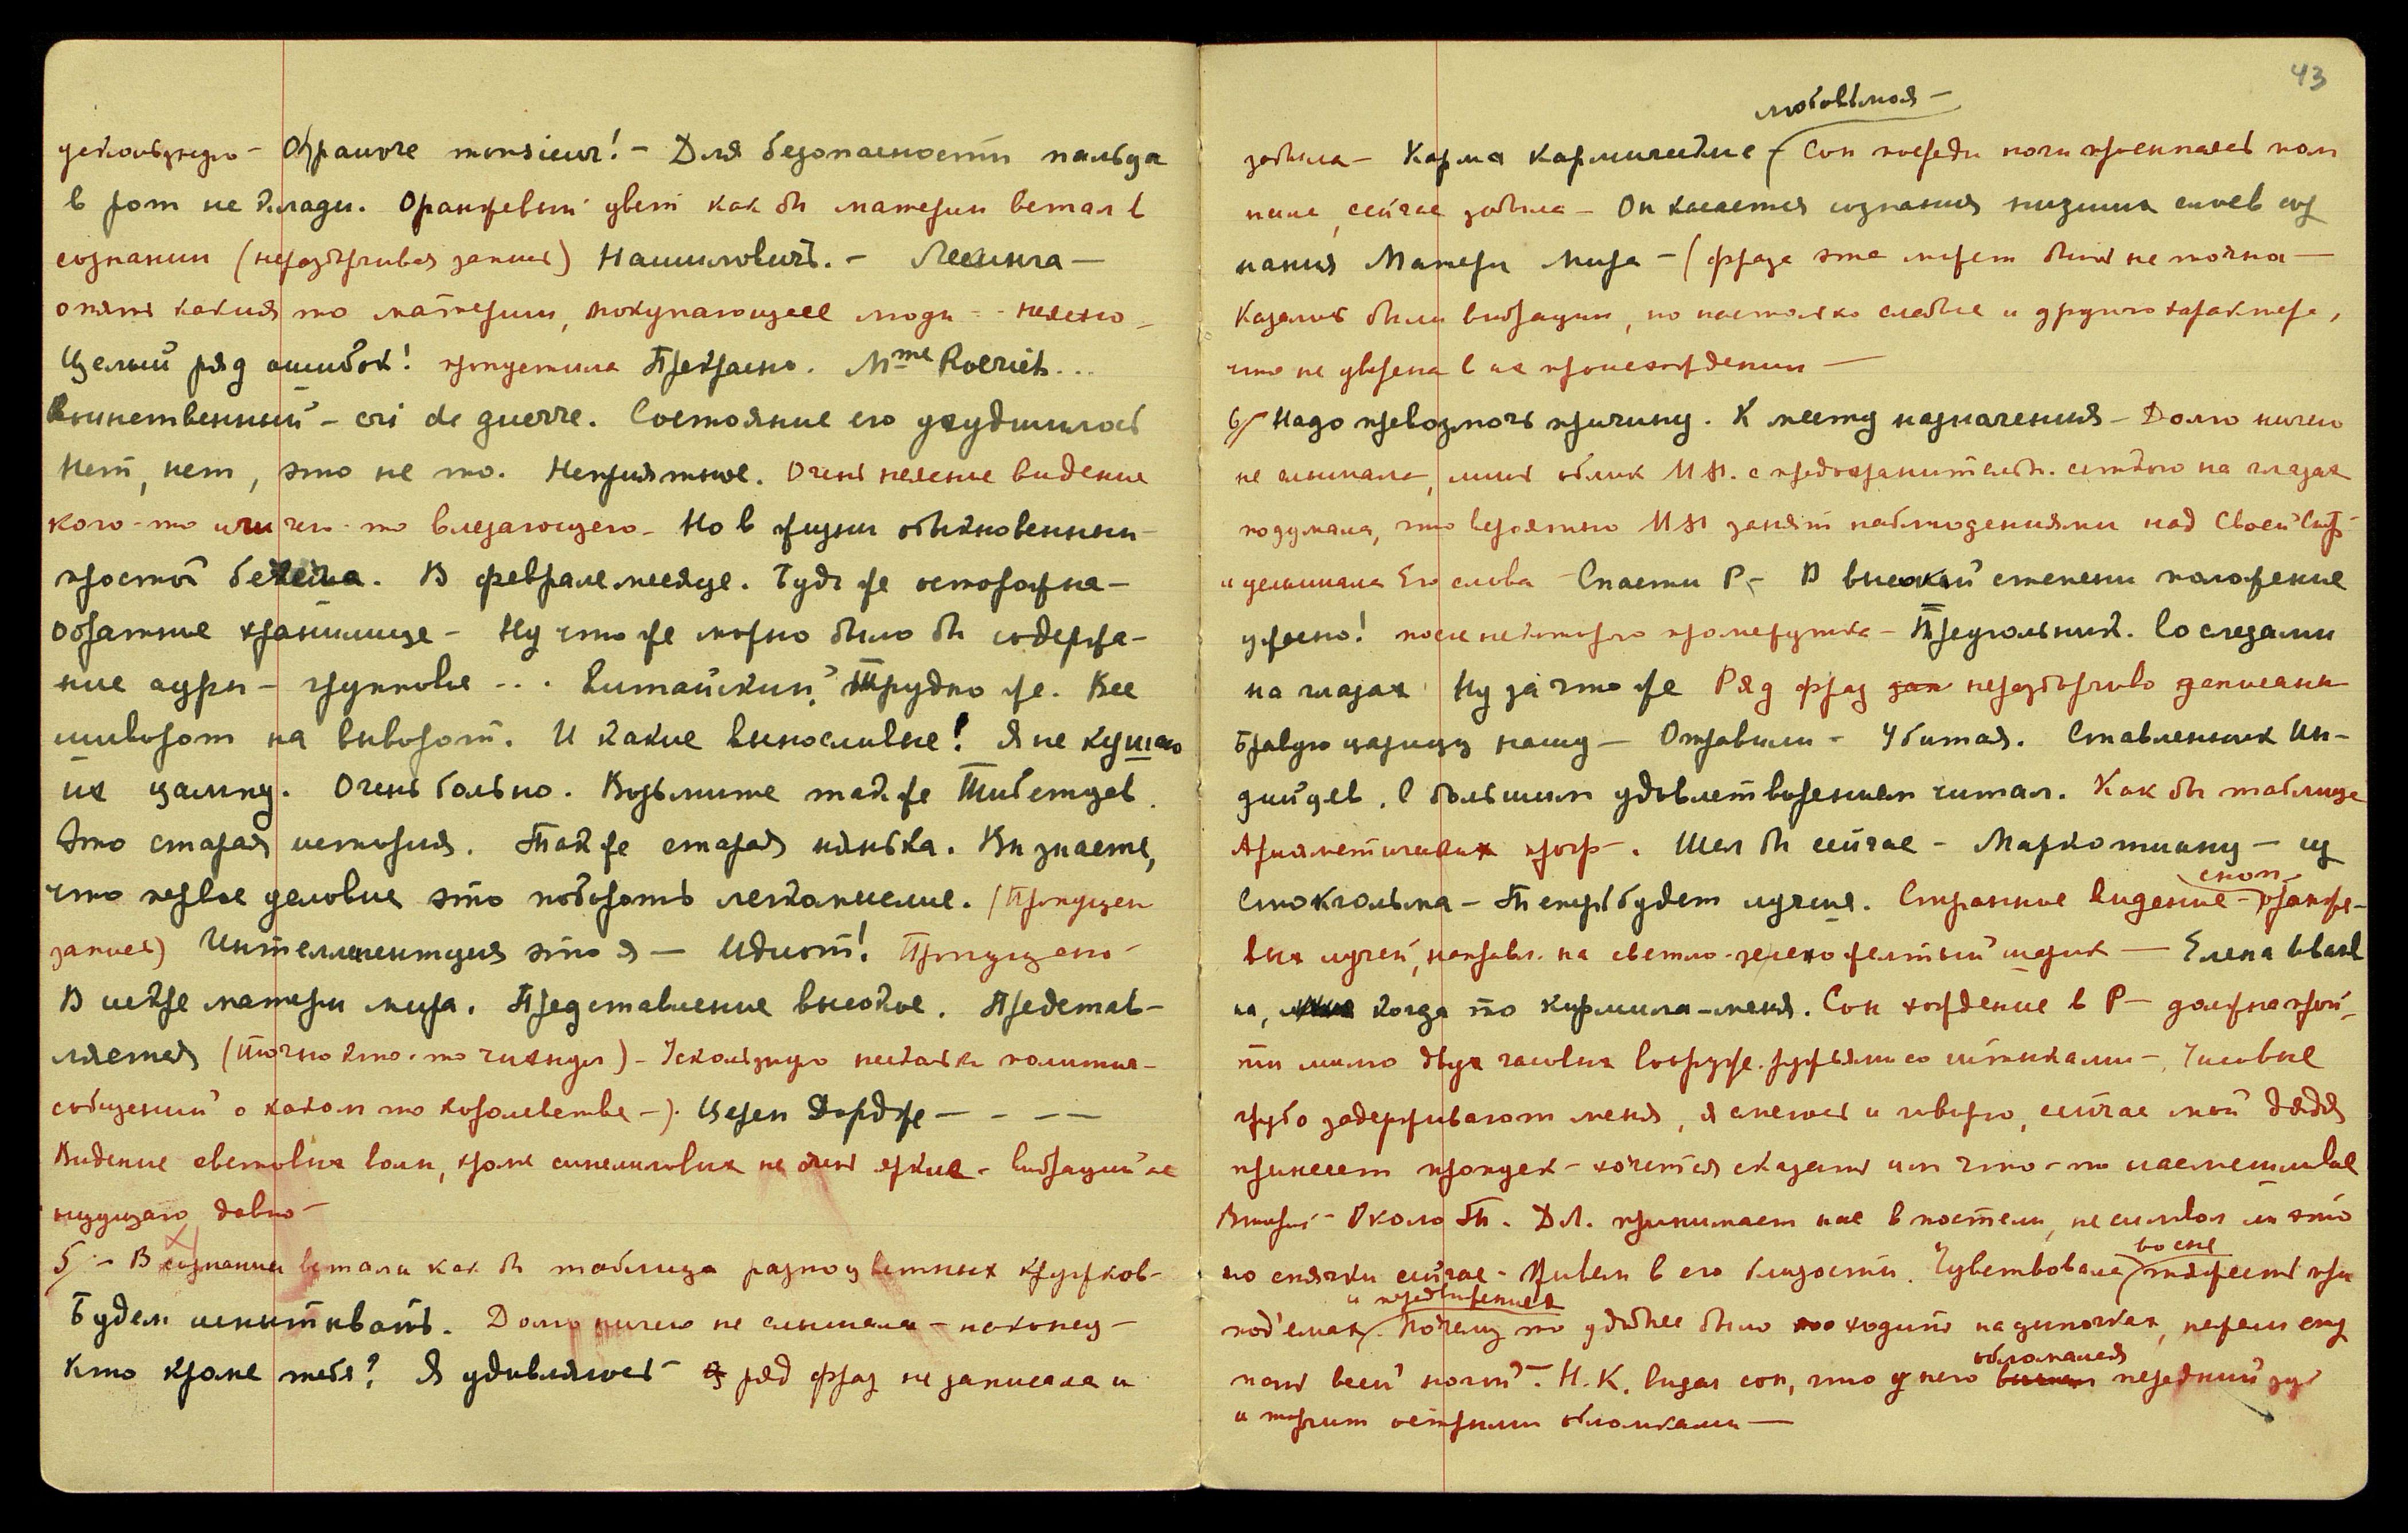 ускользнуло – Encore monsieur! – Для безопасности пальца
в рот не клади. Оранжевый цвет как бы материи встал в
сознании (неразборчивая запись) Нашиловить. –
опять какия то материи, покупающее люди – неясно –
Целый ряд ошибок! пропустила Прекрасно. Mme Roerich...
Воинственный – cri de guerre. Состояние его ухудшилось
Нет, нет, это не то. Неприятное. Очень неясное видение
кого-то или чего-то влезающего – Но в жизни обыкновенный –
простой. В феврале месяце. Будь же осторожна –
Обратное хранилище – Ну что же можно было бы содержа-
ние ауры – групповые ... Китайский? Трудно же. Все
шиворот на выворот. И какие выносливые! Я не кушаю
их цампу. Очень больно. Возьмите также Тибетцев.
Это старая история. Также старая нянька. Вы знаете,
что первое условие это побороть легкомыслие. (Пропущен
запись) Интеллигенция это я – Идиот! Пропущено –
В искре матери мира. Представление высокое. Представ-
ляется (точно кто-то чихнул) – Ускользнуло несколько политич –
сообщений о каком то королевстве –). Церен Дордже – – – –
Видение световых волн, кроме синелиловых не очень яркие – вибраций не
ощущаю давно –
5/ – В сознании встала как бы таблица разноцветных кружков –
Будем испытывать. Долго ничего не слышала – наконец –
Кто кроме тебя? Я удивляюсь – ряд фраз не записала и
43
любовьмоя –
забыла – Карма – Сон посреди ночи просыпаясь пом
нила, сейчас забыла – Он касается сознания низших слоев соз
нания Матери Мира – (фраза эта может быть не точна –
Казалось были вибрации, но настолько слабые и другого характера,
что не уверена в их происхождении –
6/ Надо превозмочь причину. К месту назначения – Долго ничего
не слышала, лишь облик М.М. с предохранительн. сеткою на глазах
подумала, что вероятно М.М. занят наблюдениями над Своей
и услышала Его слова – Спасти Р – В высокой степени положение
ужасно! после некоторого промежутка – Треугольник. Со слезами
на глазах Ну за что же Ряд фраз зап неразборчиво записаны
Бравую царицу нашу – Отравили – Убитая. Ставленник Ин-
дийцев. С большим удовлетворением читал. Как бы таблица
Арифметических прогр –. Шел бы сейчас – – из
Стокгольма – Теперь будет лучше. Странное видение –
сноп
оранже-
вых лучей, направл. на светло-зелено желтый щелк – Елена Иван
на, когда то кормила – меня. Сон хождение в Р – должна прой-
ти мимо двух часовых вооруж. ружьями со штыками –. Часовые
грубо задерживают меня, я смеюсь и говорю, сейчас мой дядя
принесет пропуск – хочется сказать им что-то насмешливое
Второй – Около Т. Д.Л. принимает нас в постели, не символ ли это
но спячки сейчас – Живем в его близости. Чувствовала
во сне
тяжесть при
и передвижениях
под'емах. Почему то удобнее было ходить на цыпочках, нежели сту
пать всей ногой – Н.К. видел сон, что у него
обломался
передний зуб
и торчит острыми обломками –